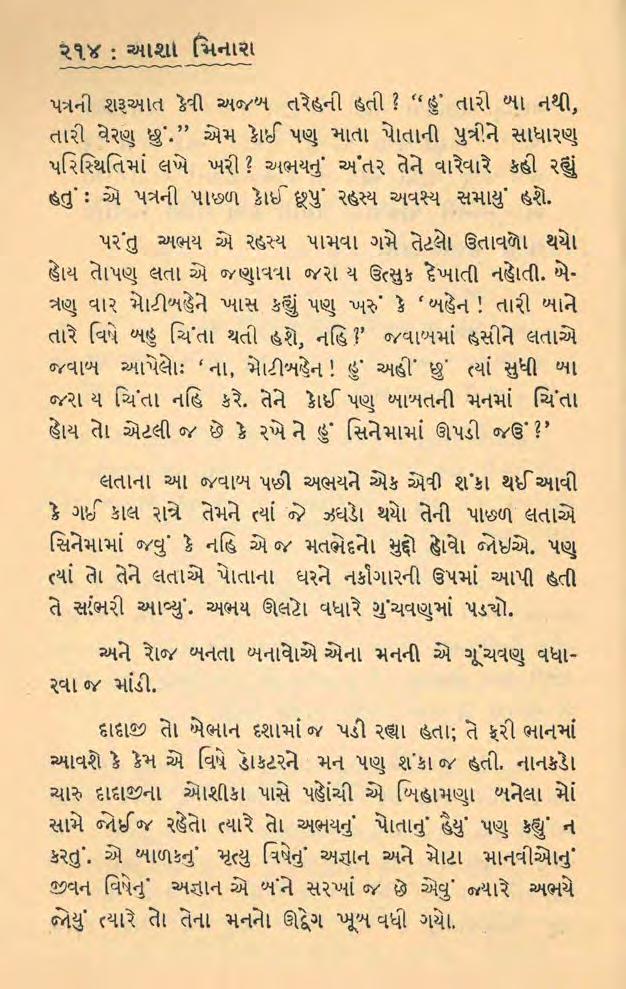 ૨૧૪ : આશા મિનારા
પત્રની શરૂઆત કેવી અજબ તરેહની હતી ? “હું તારી બા નથી,
તારી વેરણ છું.” એમ કોઈ પણ માતા પોતાની પુત્રીને સાધારણ
પરિસ્થિતિમાં લખે ખરી ? અભયનું અંતર તેને વારેવારે કહી રહ્યું
હતું : એ પત્રની પાછળ કોઈ છૂપું રહસ્ય અવશ્ય સમાયું હશે.
પરંતુ અભય એ રહસ્ય પામવા ગમે તેટલો ઉતાવળો થયો
હોય તોપણ લતા એ જણાવવા જરા ય ઉત્સુક દેખાતી નહોતી. બે-
ત્રણ વાર મોટીબહેને ખાસ કહ્યું પણ ખરું કે ‘બહેન ! તારી બાને
તારે વિષે બહુ ચિંતા થતી હશે, નહિ ?’ જવાબમાં હસીને લતાએ
જવાબ આપેલોઃ ‘ના, મોટીબહેન ! હું અહીં છું ત્યાં સુધી બા
જરા ય ચિંતા નહિ કરે. તેને કોઈ પણ બાબતની મનમાં ચિંતા
હોય તો એટલી જ છે કે રખે ને હું સિનેમામાં ઊપડી જઉં ?’
લતાના આ જવાબ પછી અભયને એક એવી શંકા થઈ આવી
કે ગઈ કાલ રાત્રે તેમને ત્યાં જે ઝઘડો થયો તેની પાછળ લતાએ
સિનેમામાં જવું કે નહિ એ જ મતભેદનો મુદ્દો હોવો જોઇએ. પણ
ત્યાં તો તેને લતાએ પોતાના ઘરને નર્કાગારની ઉપમાં આપી હતી
તે સાંભરી આવ્યું. અભય ઊલટો વધારે ગુંચવણમાં પડયો.
અને રોજ બનતા બનાવોએ એના મનની એ ગૂંચવણ વધા-
રવા જ માંડી.
દાદાજી તો બેભાન દશામાં જ પડી રહ્યા હતા; તે ફરી ભાનમાં
આવશે કે કેમ એ વિષે ડૉકટરને મન પણ શંકા જ હતી. નાનકડો
ચારુ દાદાજીના ઓશીકા પાસે પહોંચી એ બિહામણા બનેલા મોં
સામે જોઈ જ રહેતો ત્યારે તો અભયનું પોતાનું હૈયું પણ કહ્યું ન
કરતું. એ બાળકનું મૃત્યુ વિષેનું અજ્ઞાન અને મોટા માનવીઓનું
જીવન વિષેનું અજ્ઞાન એ બંને સરખાં જ છે એવું જ્યારે અભયે
જોયું ત્યારે તો તેના મનનો ઊદ્વેગ ખૂબ વધી ગયો.